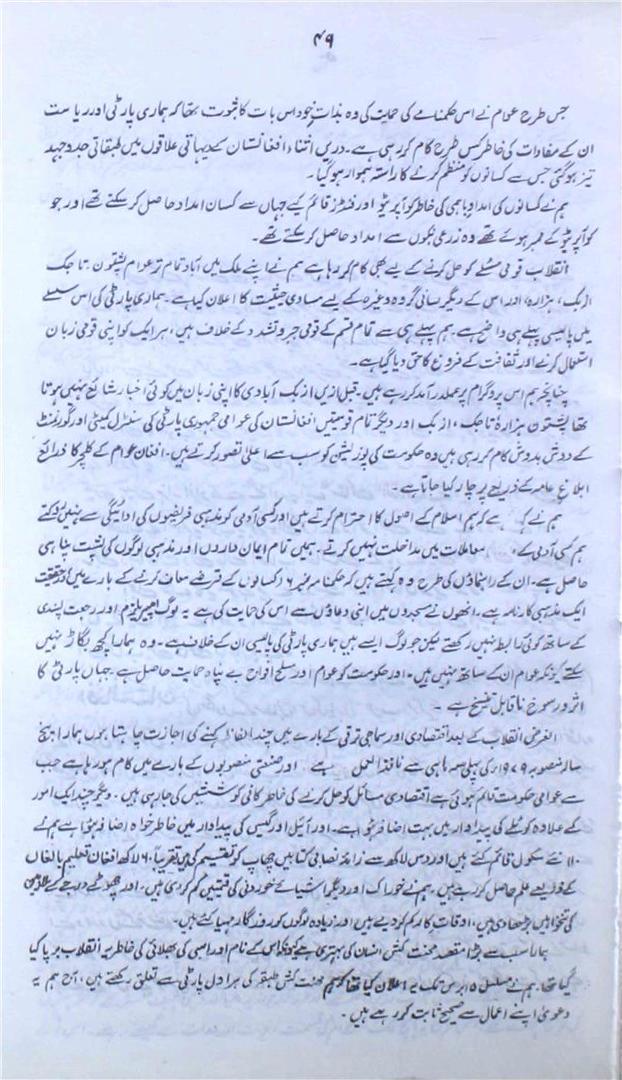 ۴۹
جس طرح عوام نے اس حکمنامے کی حمایت کی وہ بذات خود اس بات کا ثبوت تھا کہ ہماری پارٹی اور ریاست
ان کے مفادات کی خاطر کس طرح کام کر رہی ہے۔ دریں اثناء افغانستان کے دیہاتی علاقوں میں طبقاتی جدوجہد
تیز ہو گئی جس سے کسانوں کو منظم کرنے کا راستہ ہموار ہو گیا۔
ہم نے کسانوں کی امداد باہمی کی خاطر کوآپریٹو اور فنڈز قائم کیے جہاں سے کسان امداد حاصل کر سکتے تھے اور جو
کوآپریٹو کے ممبر ہوئے تھے وہ زرعی بنکوں سے امداد حاصل کر سکتے تھے۔
انقلاب قومی مسئلے کو حل کرنے کے لیے بھی کام کر رہا ہے ہم نے اپنے ملک میں آباد تمام تر عوام پشتون تاجک
ازبک، ہزارہ، اور اس کے دیگر لسانی گروہ وغیرہ کے لیے مساوی حیثیت کا اعلان کیا ہے۔ ہماری پارٹی کی اس سلسلے
میں پالیسی پہلے ہی واضح ہے ہم پہلے ہی سے تمام قسم کے قومی جبر و تشدد کے خلاف ہیں، ہر ایک کو اپنی قومی زبان
استعمال کرنے اور ثقافت کے فروغ کا حق دیا گیا ہے۔
چنانچہ ہم اس پروگرام پر عملدرآمد کر رہے ہیں۔ قبل ازیں ازبک آبادی کا اپنی زبان میں کوئی اخبار شائع نہیں ہوتا
تھا پشتون ہزارہ تاجک، ازبک اور دیگر تمام قومیتیں افغانستان کی عوامی جمہوری پارٹی کی سنٹرل کمیٹی اور گورنمنٹ
کے دوش بدوش کام کر رہی ہیں وہ حکومت کی پوزیشن کو سب سے اعلیٰ تصور کرتے ہیں۔ افغان عوام کے کلچر کا ذرائع
ابلاغ عامہ کے ذریعے پرچار کیا جاتا ہے۔
ہم نے کہا ہے کہ ہم اسلام کے اصول کا احترام کرتے ہیں اور کسی آدمی کو مذہبی فریضوں کی ادائیگی سے نہیں روکتے
ہم کسی آدمی کے معاملات میں مداخلت نہیں کرتے۔ ہمیں تمام ایمان داروں اور مذہبی لوگوں کی پشت پناہی
حاصل ہے۔ ان کے راہنماؤں کی طرح وہ کہتے ہیں کہ حکمنامہ نمبر ۶ کسانوں کے قرضے معاف کرنے کے بارے میں درحقیقت
ایک مذہبی کارنامہ ہے۔ انھوں نے مسجدوں میں اپنی دعاؤں سے اس کی حمایت کی ہے یہ لوگ امپیریلزم اور رجعت پسندی
کے ساتھ کوئی رابطہ نہیں رکھتے لیکن جو لوگ ایسے ہیں ہماری پارٹی کی پالیسی ان کے خلاف ہے۔ وہ ہمارا کچھ بگاڑ نہیں
سکتے کیونکہ عوام ان کے ساتھ نہیں ہیں۔ اور حکومت کو عوام اور مسلح افواج بے پناہ حمایت حاصل ہے جہاں پارٹی کا
اثر و رسوخ ناقابل تسخیر ہے۔
الغرض انقلاب کے بعد اقتصادی اور سماجی ترقی کے بارے میں چند الفاظ کہنے کی اجازت چاہتا ہوں ہمارا پنج
سالہ منصوبہ ۱۹۷۹ء کی پہلی سہ ماہی سے نافذ العمل ہے اور صنعتی منصوبوں کے بارے میں کام ہو رہا ہے جب
سے عوامی حکومت قائم ہوئی ہے اقتصادی مسائل کو حل کرنے کی خاطر کافی کوششیں کی جا رہی ہیں۔ دیگر چند ایک امور
کے علاوہ کوئلے کی پیداوار میں بہت اضافہ ہوا ہے۔ اور آئیل اور گیس کی پیداوار میں خاطر خواہ اضافہ ہوا ہے ہم نے
نئے سکول قائم کئے ہیں اور دس لاکھ سے زائد نصابی کتابیں چھاپ کر تقسیم کی ہیں تقریباً ۶۰ لاکھ افغان تعلیم بالغاں
کے ذریعے علم حاصل کر رہے ہیں، ہم نے خوراک اور دیگر اشیائے خوردنی کی قیمتیں کم کر دی ہیں۔ اور چھوٹے درجے کے ملازمین
کی تنخواہیں بڑھا دی ہیں، اوقات کار کم کر دیے ہیں اور زیادہ لوگوں کو روزگار مہیا کئے ہیں۔
ہمارا سب سے بڑا مقصد محنت کش انسان کی بہتری ہے کیونکہ اس کے نام اور اسی کی بھلائی کی خاطر یہ انقلاب برپا کیا
گیا تھا۔ ہم نے مسلسل ۱۵ برس تک یہ اعلان کیا تھا کہ ہم محنت کش طبقہ کی ہراول پارٹی سے تعلق رکھتے ہیں، آج ہم یہ
دعویٰ اپنے اعمال سے صحیح ثابت کر رہے ہیں۔